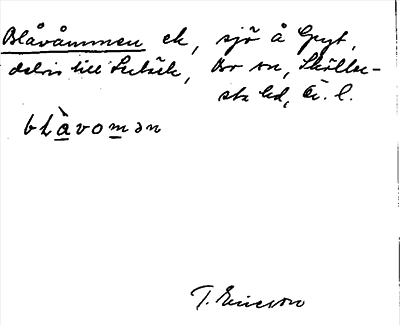 Blåvåmmen ek, sjö å Gryt,
delvis till Lubäck, Bo sn, Sköllers-
sta hd, Ö. l.
blàvomən
T. Ericsson